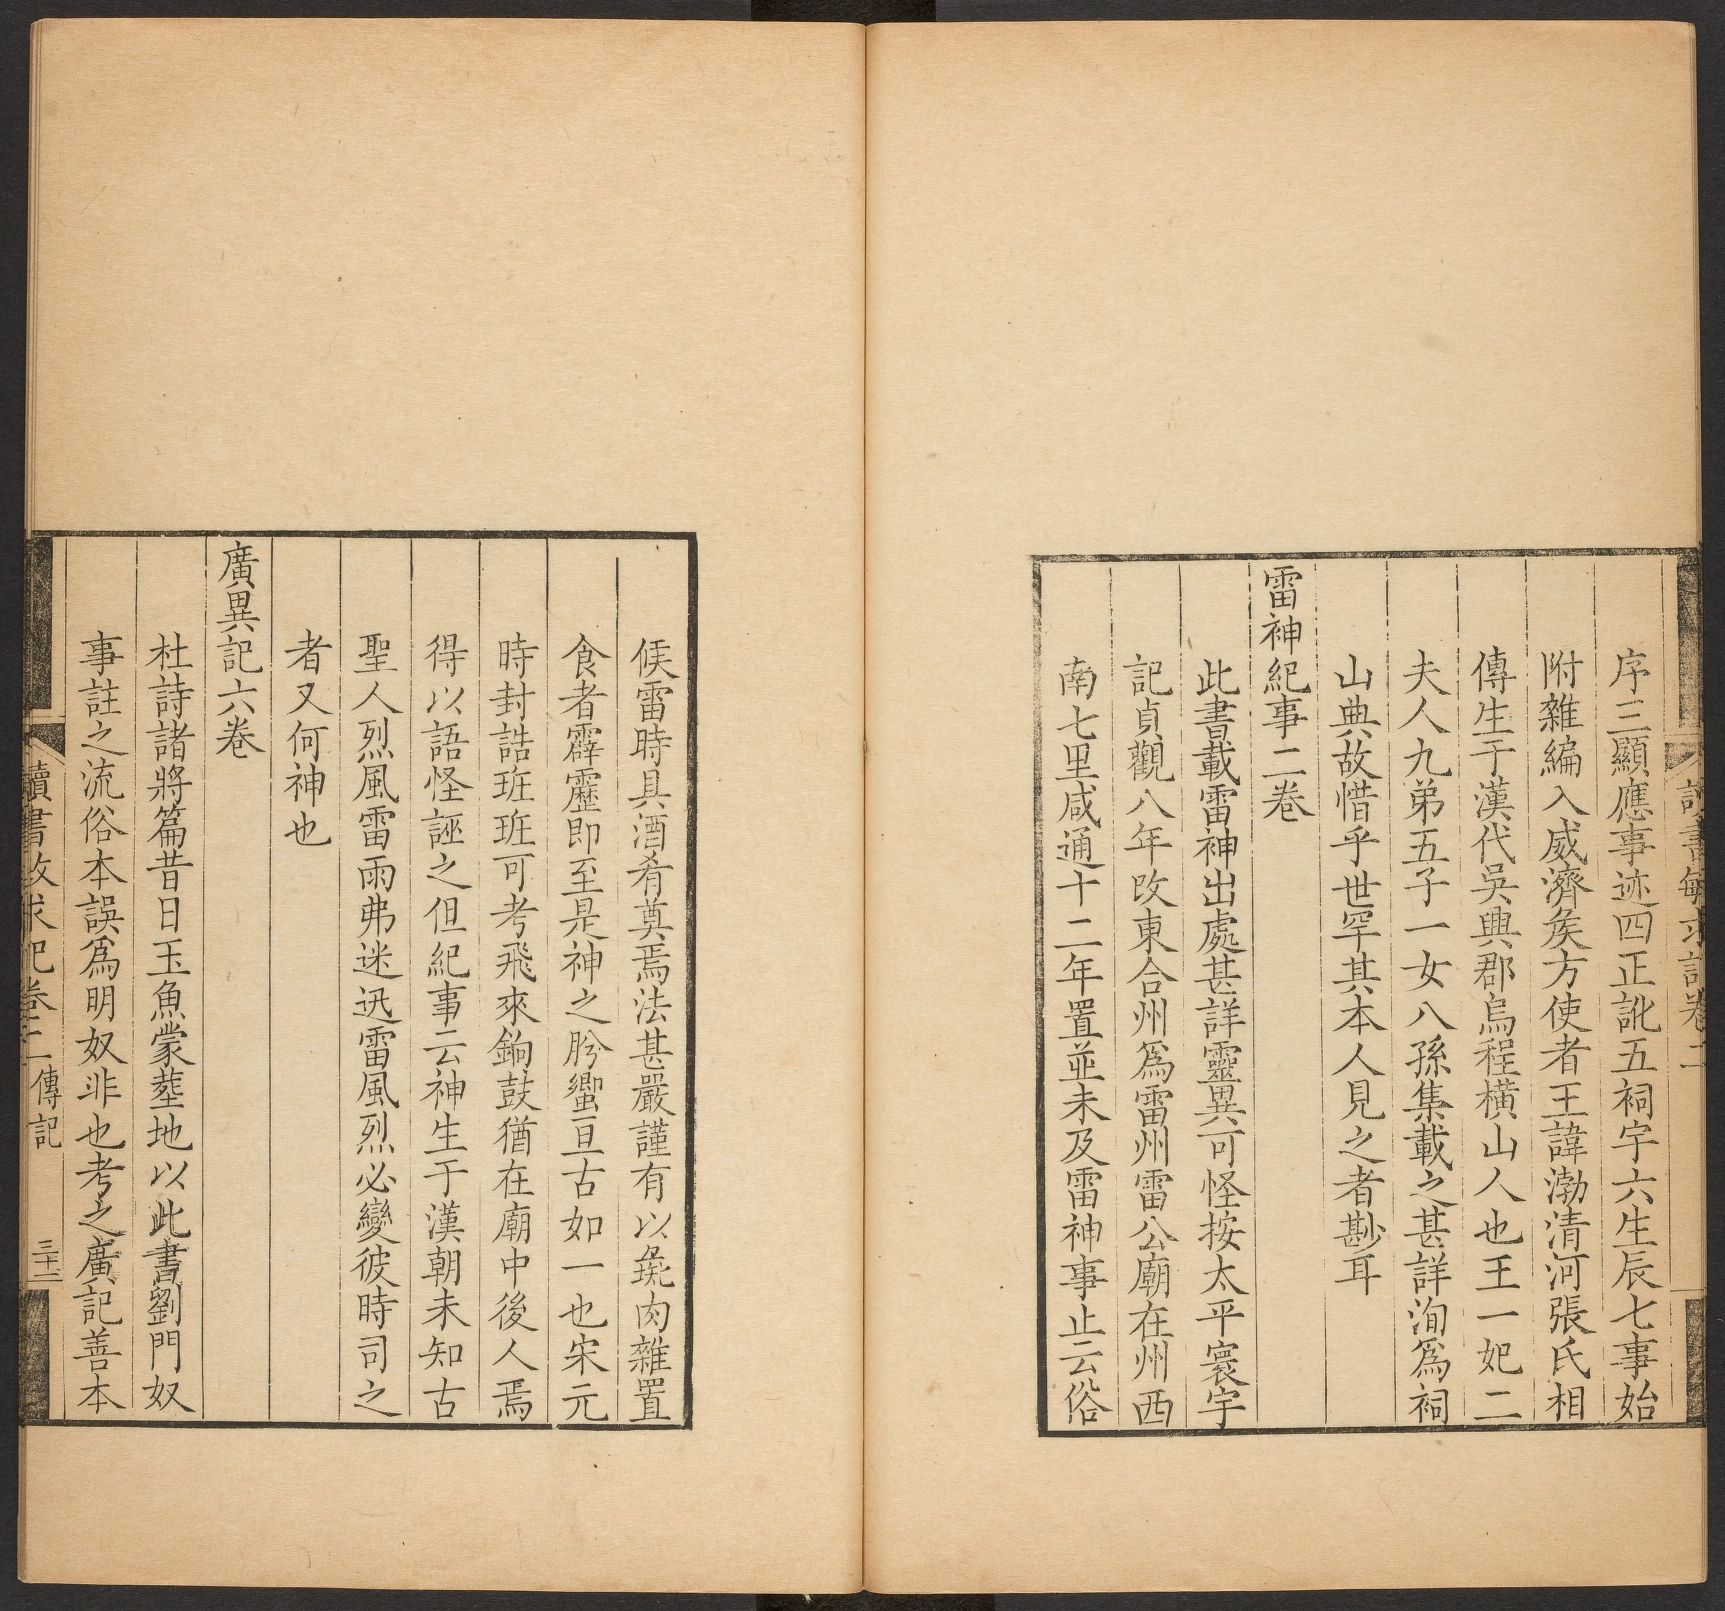 序三顯應事迹四正訛五祠宇六生辰七事始
附雜編入威濟矦方使者王諱渤清河張氏相
傳生于漢代吳興郡烏程橫山人也王一妃二
夫人九弟五子一女八孫集載之甚詳洵爲祠
山典故惜乎世罕其本人見之者尠耳
雷神紀事二卷
此書載雷神出處甚詳靈異可怪按太平寰宇
記貞觀八年改東合州爲雷州雷公廟在州西
南七里咸通十二年置並未及雷神事止云俗
候雷時具酒肴奠焉法甚嚴謹有以彘肉雜置
食者霹靂即至是神之肹蠁亘古如一也宋元
時封誥班班可考飛來銅鼓猶在廟中後人焉
得以語怪誣之但紀事云神生于漢朝未知古
聖人烈風雷雨弗迷迅雷風烈必變彼時司之
者又何神也
廣異記六卷
杜詩諸將篇昔日玉魚蒙塟地以此書劉門奴
事註之流俗本誤爲明奴非也考之廣記善本
讀書敏求記卷二 傳記 三十二